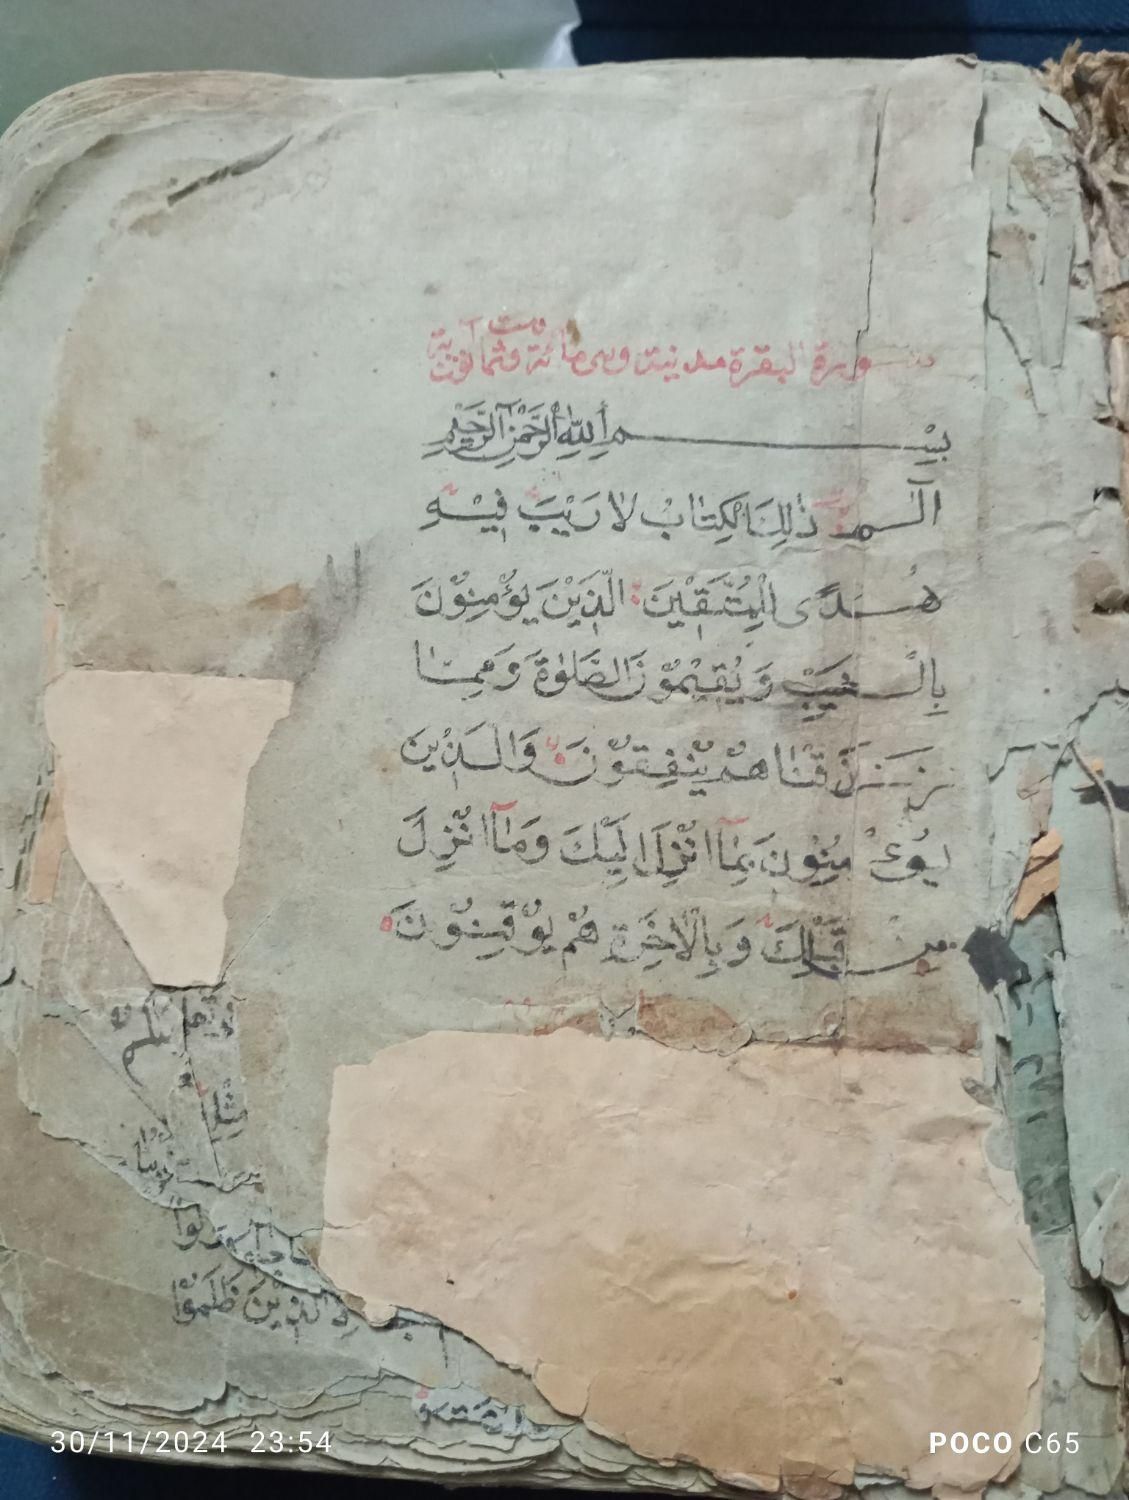 سورة البقرة مدنية وهى مائة وثمانون وست آية
بِسْمِ اللّٰهِ الرَّحْمٰنِ الرَّحِيْمِ
الٓـمّ ذٰلِكَ الْكِتَابُ لَا رَيْبَ فِيْهِ
هُدًى لِلْمُتَّقِيْنَ الَّذِيْنَ يُؤْمِنُوْنَ
بِالْغَيْبِ وَيُقِيْمُوْنَ الصَّلٰوةَ وَمِمَّا
رَزَقْنَاهُمْ يُنْفِقُوْنَ وَالَّذِيْنَ
يُوءْمِنُوْنَ بِمَآ اُنْزِلَ اِلَيْكَ وَمَآ اُنْزِلَ
مِنْ قَبْلِكَ وَبِالْاٰخِرَةِ هُمْ يُوْقِنُوْنَ
الَّذِيْنَ ظَلَمُوْا
30/11/2024 23:54
POCO C65